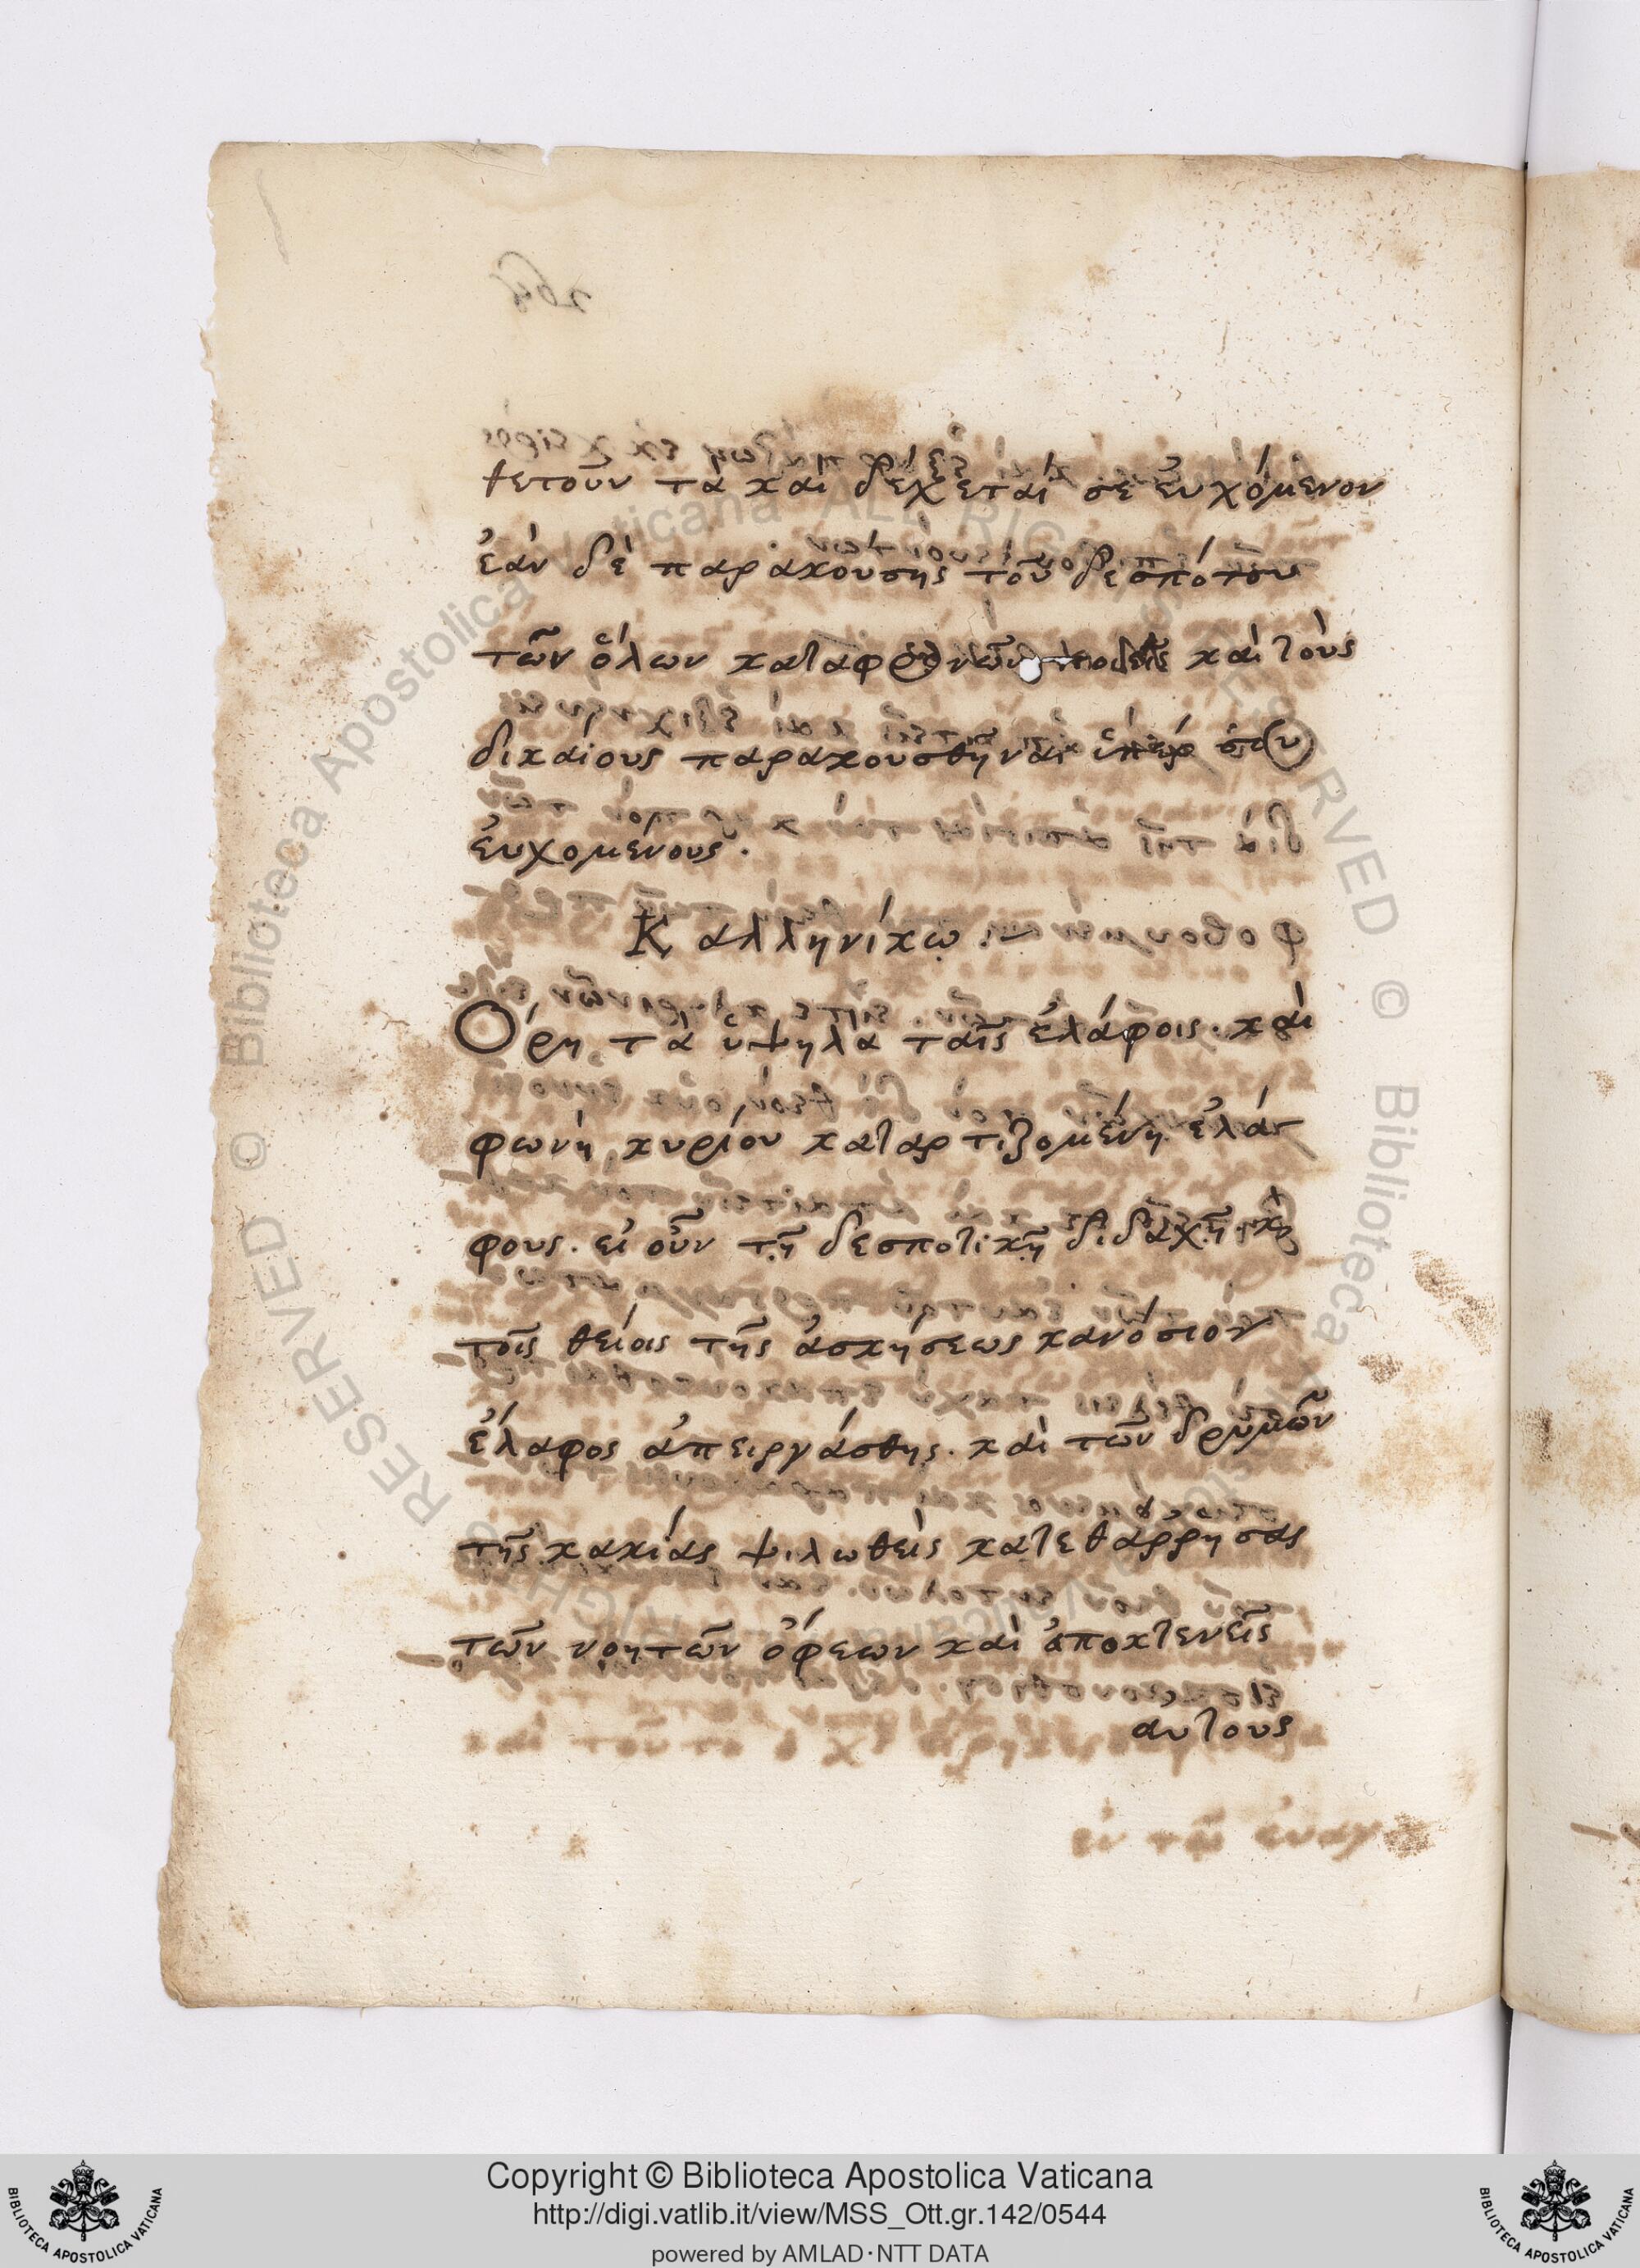 θετοῦν τὰ καὶ δέχεταί σε ἐυχόμενον
ἐὰν δὲ παρακούσης τοῦ δεσπότου
τῶν ὅλων καταφρονῶν καὶ τοὺς
δικαίους παρακουσθῆναι ὑπὲρ σου
ἐυχομένους.
Καλληνίκω
Ὄρη τὰ ὑψηλὰ ταῖς ἐλάφοις. καὶ
φωνὴ κυρίου καταρτιζομένη ἐλά
φους. εἰ οὖν τῆ δεσποτικῆ διδαχῆ κ
τοῖς θείοις τῆς ἀσκήσεως κανόσιον
ἔλαφος ἀπειργάσθης. καὶ τῶν δρυμῶν
τῆς κακίας ψιλωθεὶς κατεθάρρησας
τῶν νοητῶν ὄφεων καὶ ἀποκτενεῖς
ἀυτους
Copyright © Biblioteca Apostolica Vaticana
http://digi.vatlib.it/view/MSS_Ott.gr.142/0544
powered by AMLAD·NTT DATA
BIBLIOTECA APOSTOLICA VATICANA
BIBLIOTECA APOSTOLICA VATICANA